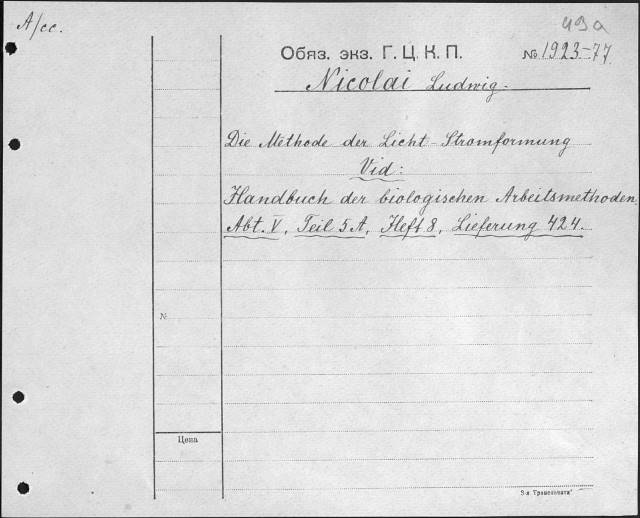 A/cc.
49a
Обяз. экз. Г. Ц. К. П.
№ 1923-77
Nicolai Ludwig.
Die Methode der Licht-Stromformung
Vid:
Handbuch der biologischen Arbeitsmethoden
Abt. V, Teil 5 A, Heft 8, Lieferung 424.
№
Цена